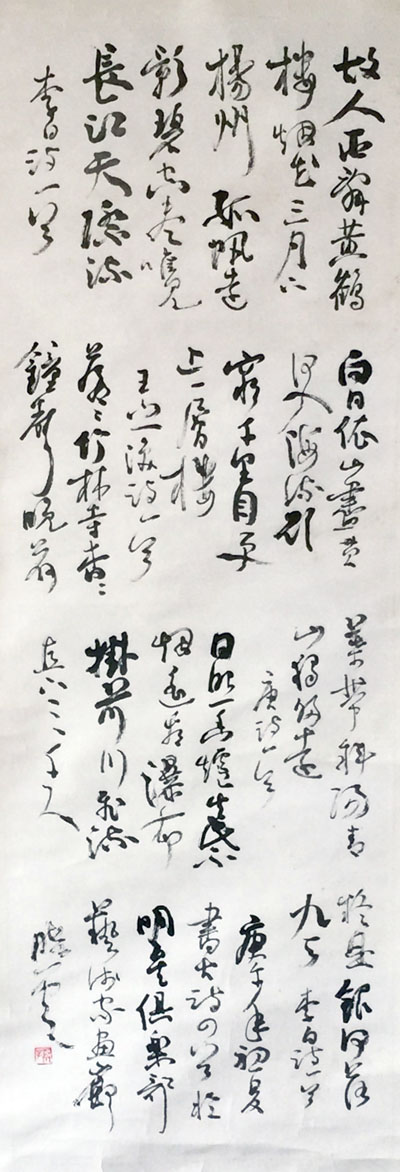 故人西辭黃鶴
樓烟花三月下
揚州 孤帆遠
影碧空盡唯見
長江天際流
李白詩一首
白日依山盡黃
河入海流欲
窮千里目更
上一層樓
王之渙詩一首
蒼〻竹林寺杳〻
鐘聲晚荷
笠帶斜陽青
山獨歸遠
唐詩一首
日照香爐生紫
烟遙看瀑布
掛前川飛流
直下三千尺
疑是銀河落
九天 李白詩一首
庚午年初夏
書古詩四首於
明星俱樂部
藝術家畫廊